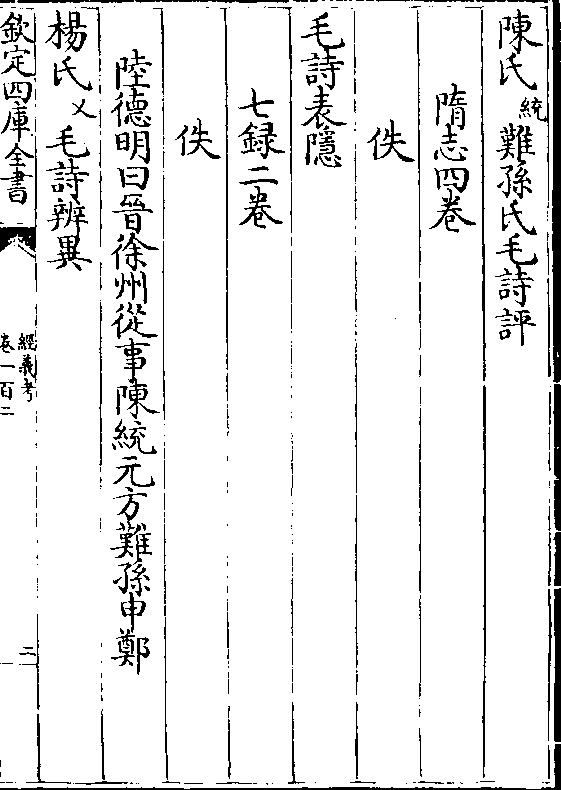 陳氏統難孫氏毛詩評
隋志四卷
佚
毛詩表隱
七録二卷
佚
陸德明曰晉徐州從事陳統元方難孫申鄭
楊氏乂毛詩辨異
欽定四庫全書
經義考
卷一百二
二